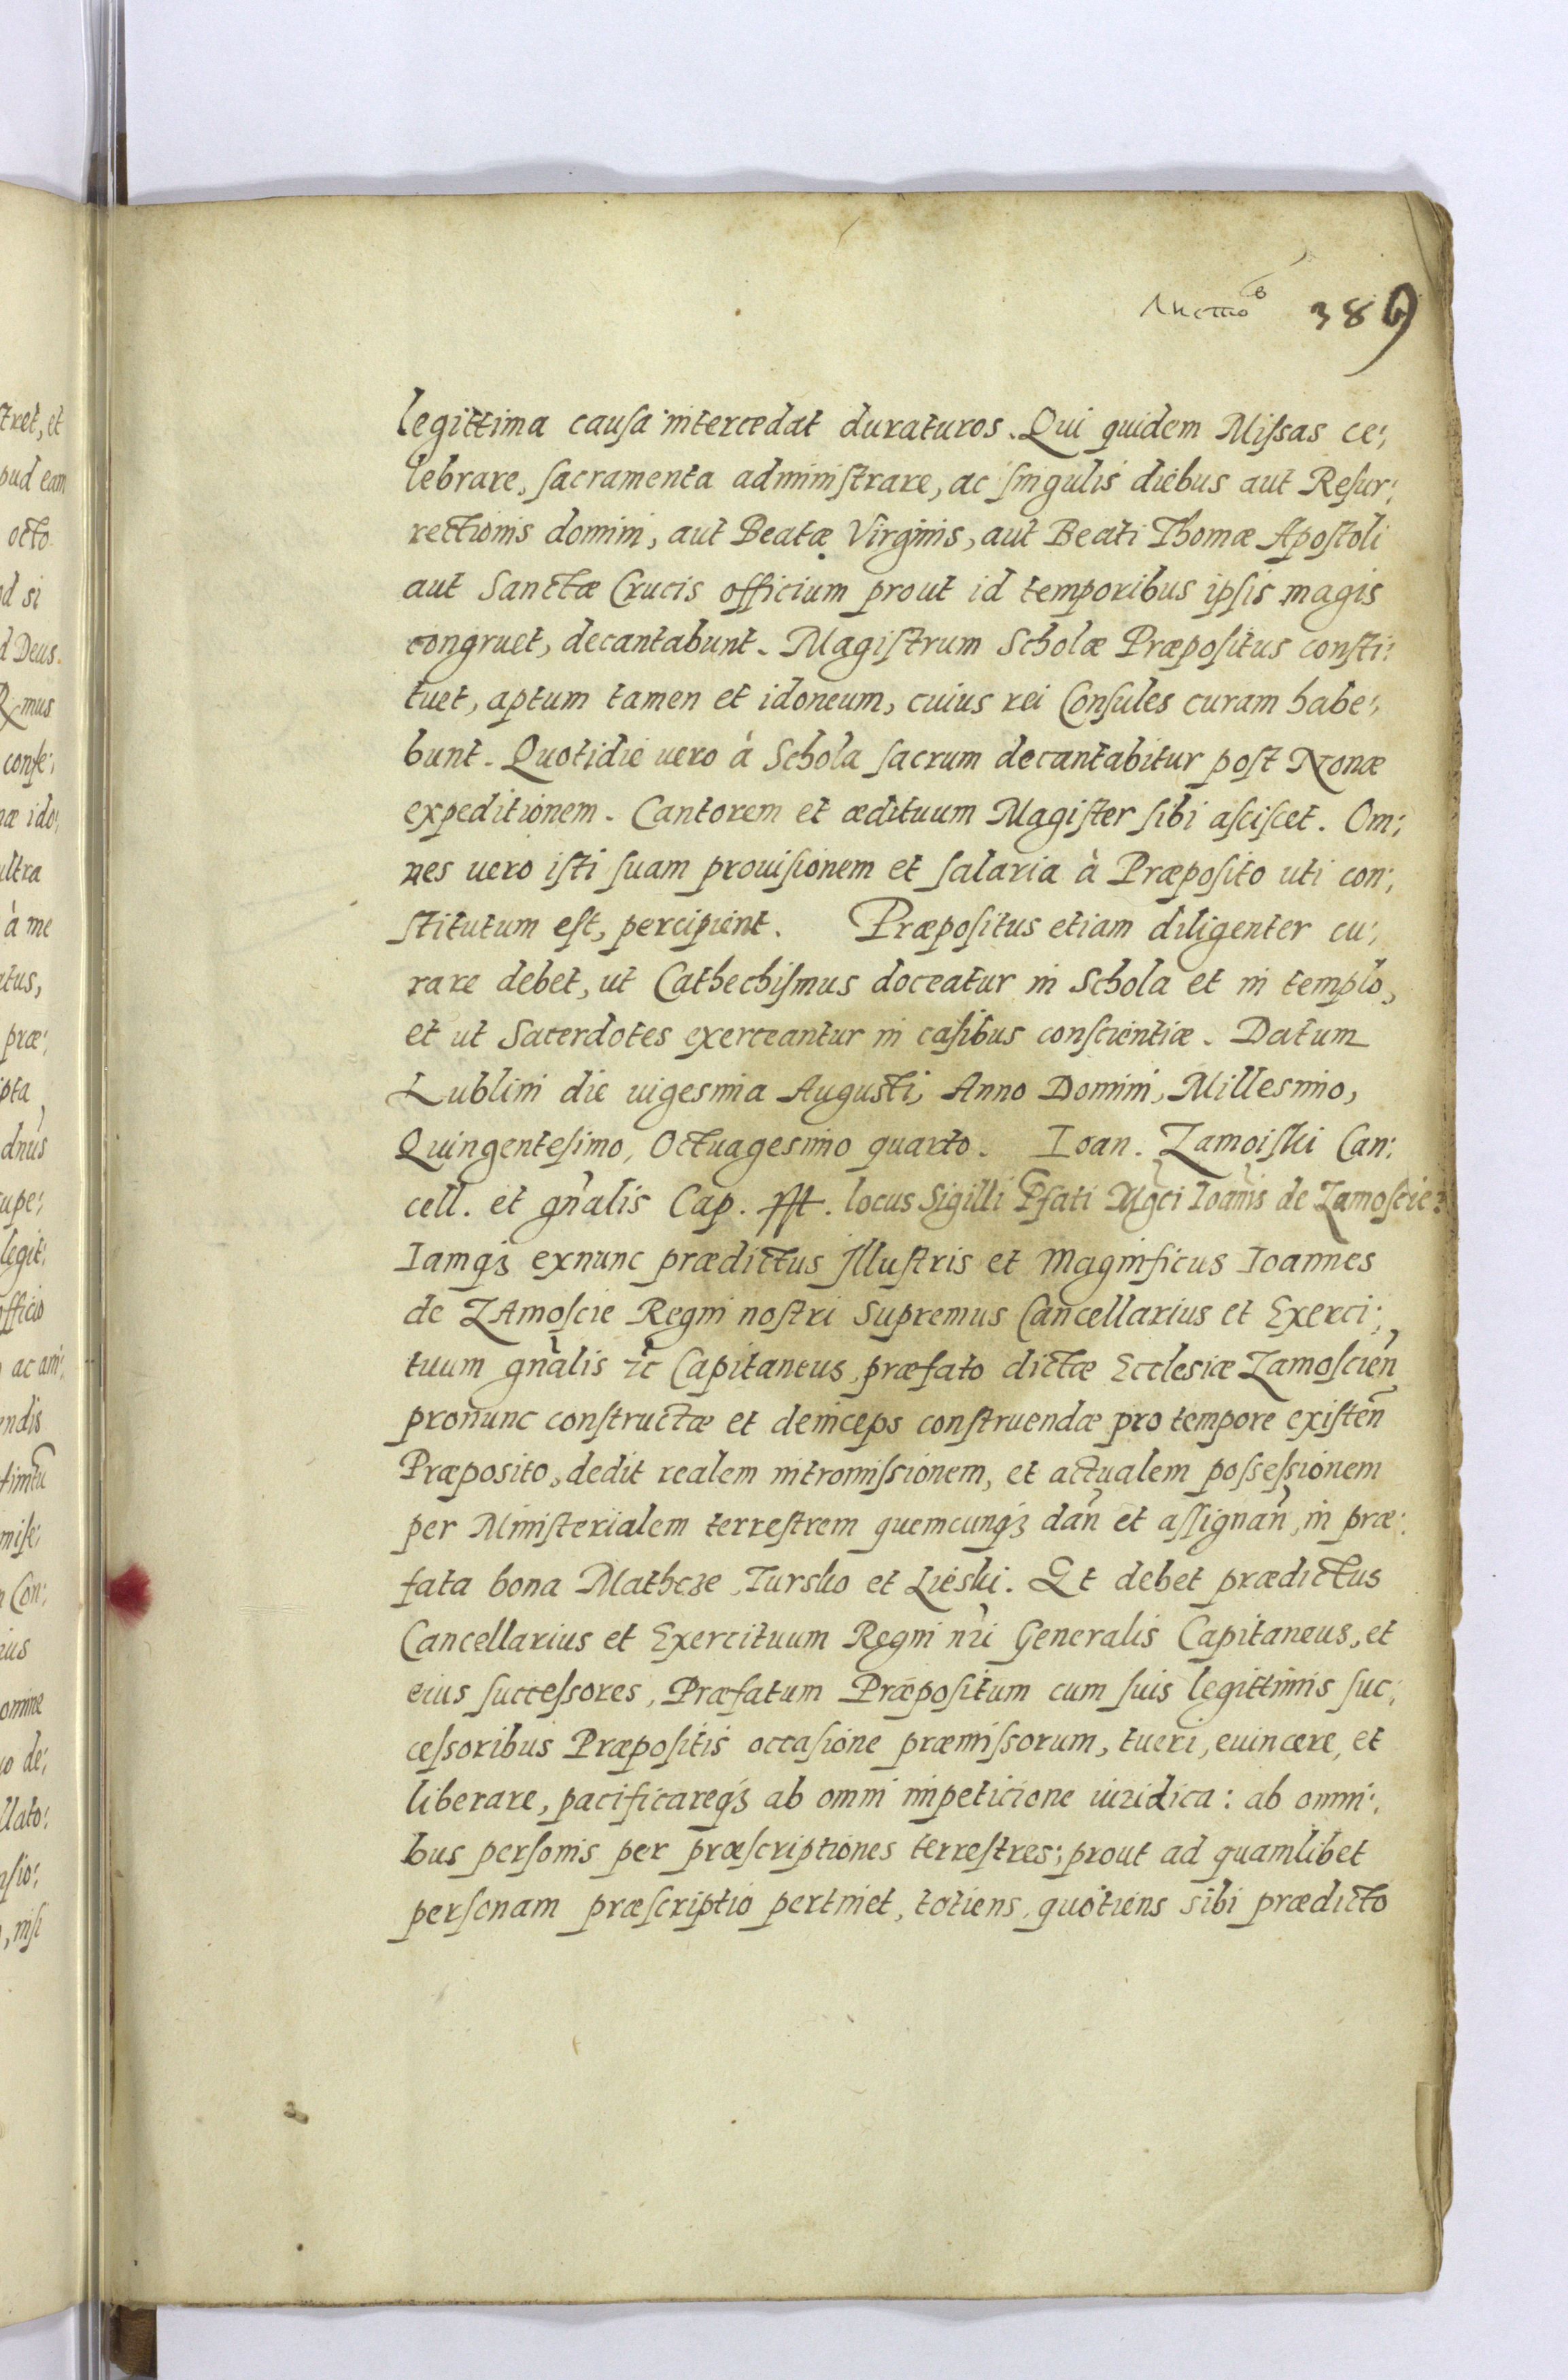 389
legittima causa intercedat duraturos. Qui quidem Missas ce:
lebrare, sacramenta administrare, ac singulis diebus aut Resur:
rectionis domini, aut Beatæ Virginis, aut Beati Thomæ Apostoli
aut Sanctæ Crucis officium prout id temporibus ipsis magis
congruet, decantabunt. Magistrum Scholæ Præpositus consti:
tuet, aptum tamen et idoneum, cuius rei Consules curam habe:
bunt. Quotidie uero à Schola sacrum decantabitur post Nonæ
expeditionem. Cantorem et ædituum Magister sibi asciscet. Om:
nes uero isti suam prouisionem et salaria à Præposito uti con:
stitutum est, percipient. Præpositus etiam diligenter cu:
rare debet, ut Cathechismus doceatur in Schola et in templo,
et ut Sacerdotes exerceantur in casibus conscientiæ. Datum
Lublini die uigesima Augusti, Anno Domini, Millesimo,
Quingentesimo, Octuagesimo quarto. Ioan. Zamoiski Can:
cell. et gn̄alis Cap. locus Sigilli Pfati Mgci Ioānis de Zamoscie:
Iamqꝫ exnunc prædictus Illustris et Magnificus Ioannes
de ZAmoscie Regni nostri Supremus Cancellarius et Exerci:
tuum gn̄alis ꝛc Capitaneus, præfato dictæ Ecclesiæ Zamoscien̄
pronunc constructæ et deinceps construendæ pro tempore existen̄
Præposito, dedit realem intromissionem, et actualem possessionem
per Ministerialem terrestrem quemcunqꝫ dan̄ et assignan̄, in præ:
fata bona Matheze, Tursko et Lieski. Et debet prædictus
Cancellarius et Exercituum Regni nr̄i Generalis Capitaneus, et
eius successores, Præfatum Præpositum cum suis legittimis suc:
cessoribus Præpositis occasione præmissorum, tueri, euincere, et
liberare, pacificareqꝫ ab omni impeticione iuridica: ab omni:
bus personis per præscriptiones terrestres: prout ad quamlibet
personam præscriptio pertinet, totiens, quotiens sibi prædicto